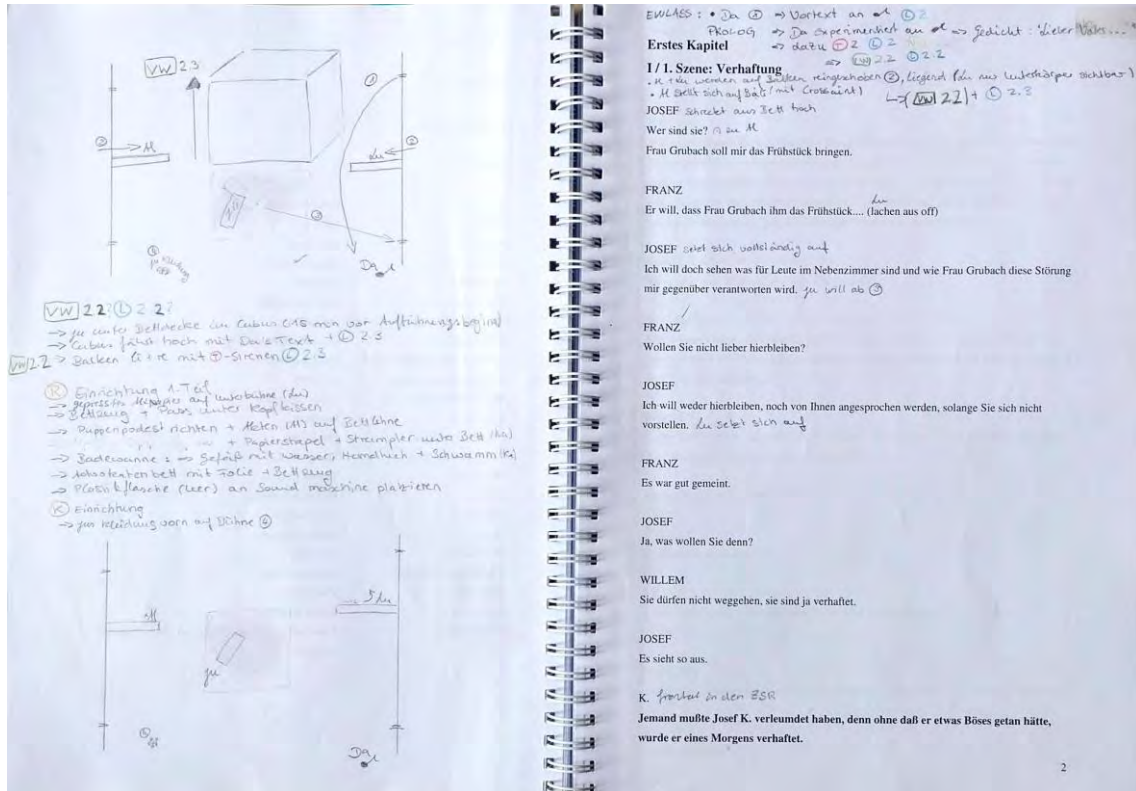 VW 2.3
①
② → M
Lu ← ②
③
④
Ju Kleidung
Da
VW 2.2? Ⓛ 2.2?
→ Ju unter Bettdecke im Cubus (15 min vor Aufführungsbeginn)
→ Cubus fährt hoch mit Da's Text + Ⓛ 2.3
VW 2.2 → Balken li + re mit Ⓣ-Sirenen Ⓛ 2.3
Ⓡ Einrichtung 1. Teil
→ auf Unterbühne (Lu)
→ Bettzeug + Pass unter Kopfkissen
→ Puppenpodest richten + (M) auf Bettlehne
→ " + Papierstapel + Strampler unter Bett
→ Badewanne : → Gefäß mit Wasser, + Schwamm
→ bett mit Folie + Bettzeug
→ Plastikflasche (leer) an Sound maschine platzieren
Ⓚ Einrichtung
→ Jus Kleidung vorn auf Bühne ④
M
Lu
Ju
Da
EINLASS : • Da ① → Vortext an Ⓛ 2
PROLOG → Da experimentiert an → Gedicht : "Lieber Vater..."
Erstes Kapitel → dazu Ⓣ 2 Ⓛ 2
→ VW 2.2 Ⓛ 2.2
I / 1. Szene: Verhaftung
• M + Lu werden auf Balken reingeschoben ②, liegend (bei nur Unterkörper sichtbar)
• M stellt sich auf (mit Croissaint) ↳ (VW 2.2) + Ⓛ 2.3
JOSEF schreckt aus Bett hoch
Wer sind sie? zu M
Frau Grubach soll mir das Frühstück bringen.
FRANZ
Lu
Er will, dass Frau Grubach ihm das Frühstück.... (lachen aus off)
JOSEF setzt sich vollständig auf
Ich will doch sehen was für Leute im Nebenzimmer sind und wie Frau Grubach diese Störung
mir gegenüber verantworten wird. Ju will ab ③
FRANZ
Wollen Sie nicht lieber hierbleiben?
JOSEF
Ich will weder hierbleiben, noch von Ihnen angesprochen werden, solange Sie sich nicht
vorstellen. Lu setzt sich auf
FRANZ
Es war gut gemeint.
JOSEF
Ja, was wollen Sie denn?
WILLEM
Sie dürfen nicht weggehen, sie sind ja verhaftet.
JOSEF
Es sieht so aus.
K. frontal in den ZSR
Jemand mußte Josef K. verleumdet haben, denn ohne daß er etwas Böses getan hätte,
wurde er eines Morgens verhaftet.
2